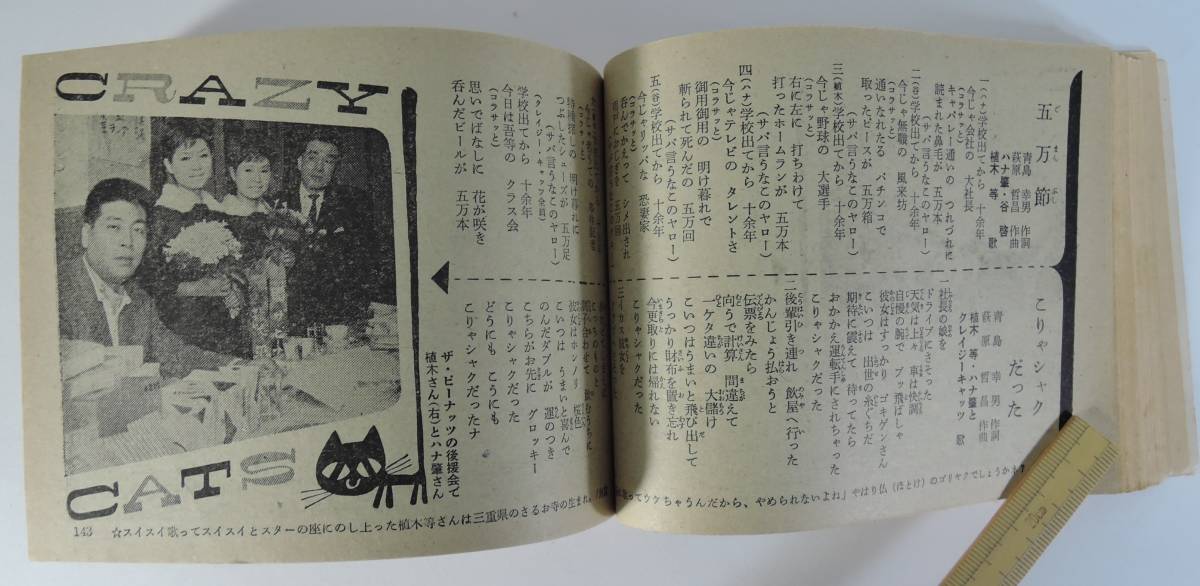 五万節
青島幸男 作詞
萩原哲晶 作曲
ハナ肇・谷啓
植木等 歌
一(ハナ)学校出てから 十余年
今じゃ会社の 大社長
(コラサッと)
キャバレー通いの つれづれに
読まれた鼻毛が 五万本
(サバ言うなこのヤロー)
二(谷)学校出てから 十余年
今じゃ無職の 風来坊
(コラサッと)
通いなれたる パチンコで
取ったピースが 五万箱
(サバ言うなこのヤロー)
三(植木)学校出てから 十余年
今じゃ野球の 大選手
(コラサッと)
右に左に 打ちわけて
打ったホームランが 五万本
(サバ言うなこのヤロー)
四(ハナ)学校出てから 十余年
今じゃテレビの タレントさ
(コラサッと)
御用御用の 明け暮れで
斬られて死んだの 五万回
(サバ言うなこのヤロー)
五(谷)学校出てから 十余年
今じゃリッパな 恐妻家
(コラサッと)
呑んでかえって シメ出され
五万回
(サバ言うなこのヤロー)
(コラサッと)
明け暮れに
つぶしたシューズが 五万足
(サバ言うなこのヤロー)
(クレイジー・キャッツ全員)
学校出てから 十余年
今日は吾等の クラス会
(コラサッと)
思いでばなしに 花が咲き
呑んだビールが 五万本
こりゃシャクだった
青島幸男 作詞
萩原哲晶 作曲
植木等・ハナ肇と
クレイジーキャッツ 歌
一社長の娘を
ドライブにさそった
天気は上々 車は快調
自慢の腕で ブッ飛ばしゃ
彼女はすっかり ゴキゲンさん
こいつは 出世の糸ぐちだ
期待に震えて 待ってたら
おかかえ運転手にされちゃった
こりゃシャクだった
二後輩引き連れ 飲屋へ行った
かんじょう払おうと
伝票をみたら
向うで計算 間違えて
一ケタ違いの 大儲け
こいつはうまいと飛び出して
うっかり財布を置き忘れ
今更取りには帰れない
こりゃシャクだった
三イカス彼女を
彼女はホンノリ 桜色
こいつは うまいと喜んで
のんだダブルが 運のつき
こちらがお先に グロッキー
こりゃシャクだった
どうにも こうにも
こりゃシャクだったナ
ザ・ピーナッツの後援会で
植木さん(右)とハナ肇さん
CRAZY
CATS
143 ☆スイスイ歌ってスイスイとスターの座にのし上った植木等さんは三重県のさるお寺の生まれ。
歌ってウケちゃうんだから、やめられないよね」やはり仏(ほとけ)のゴリヤクでしょうかネ?